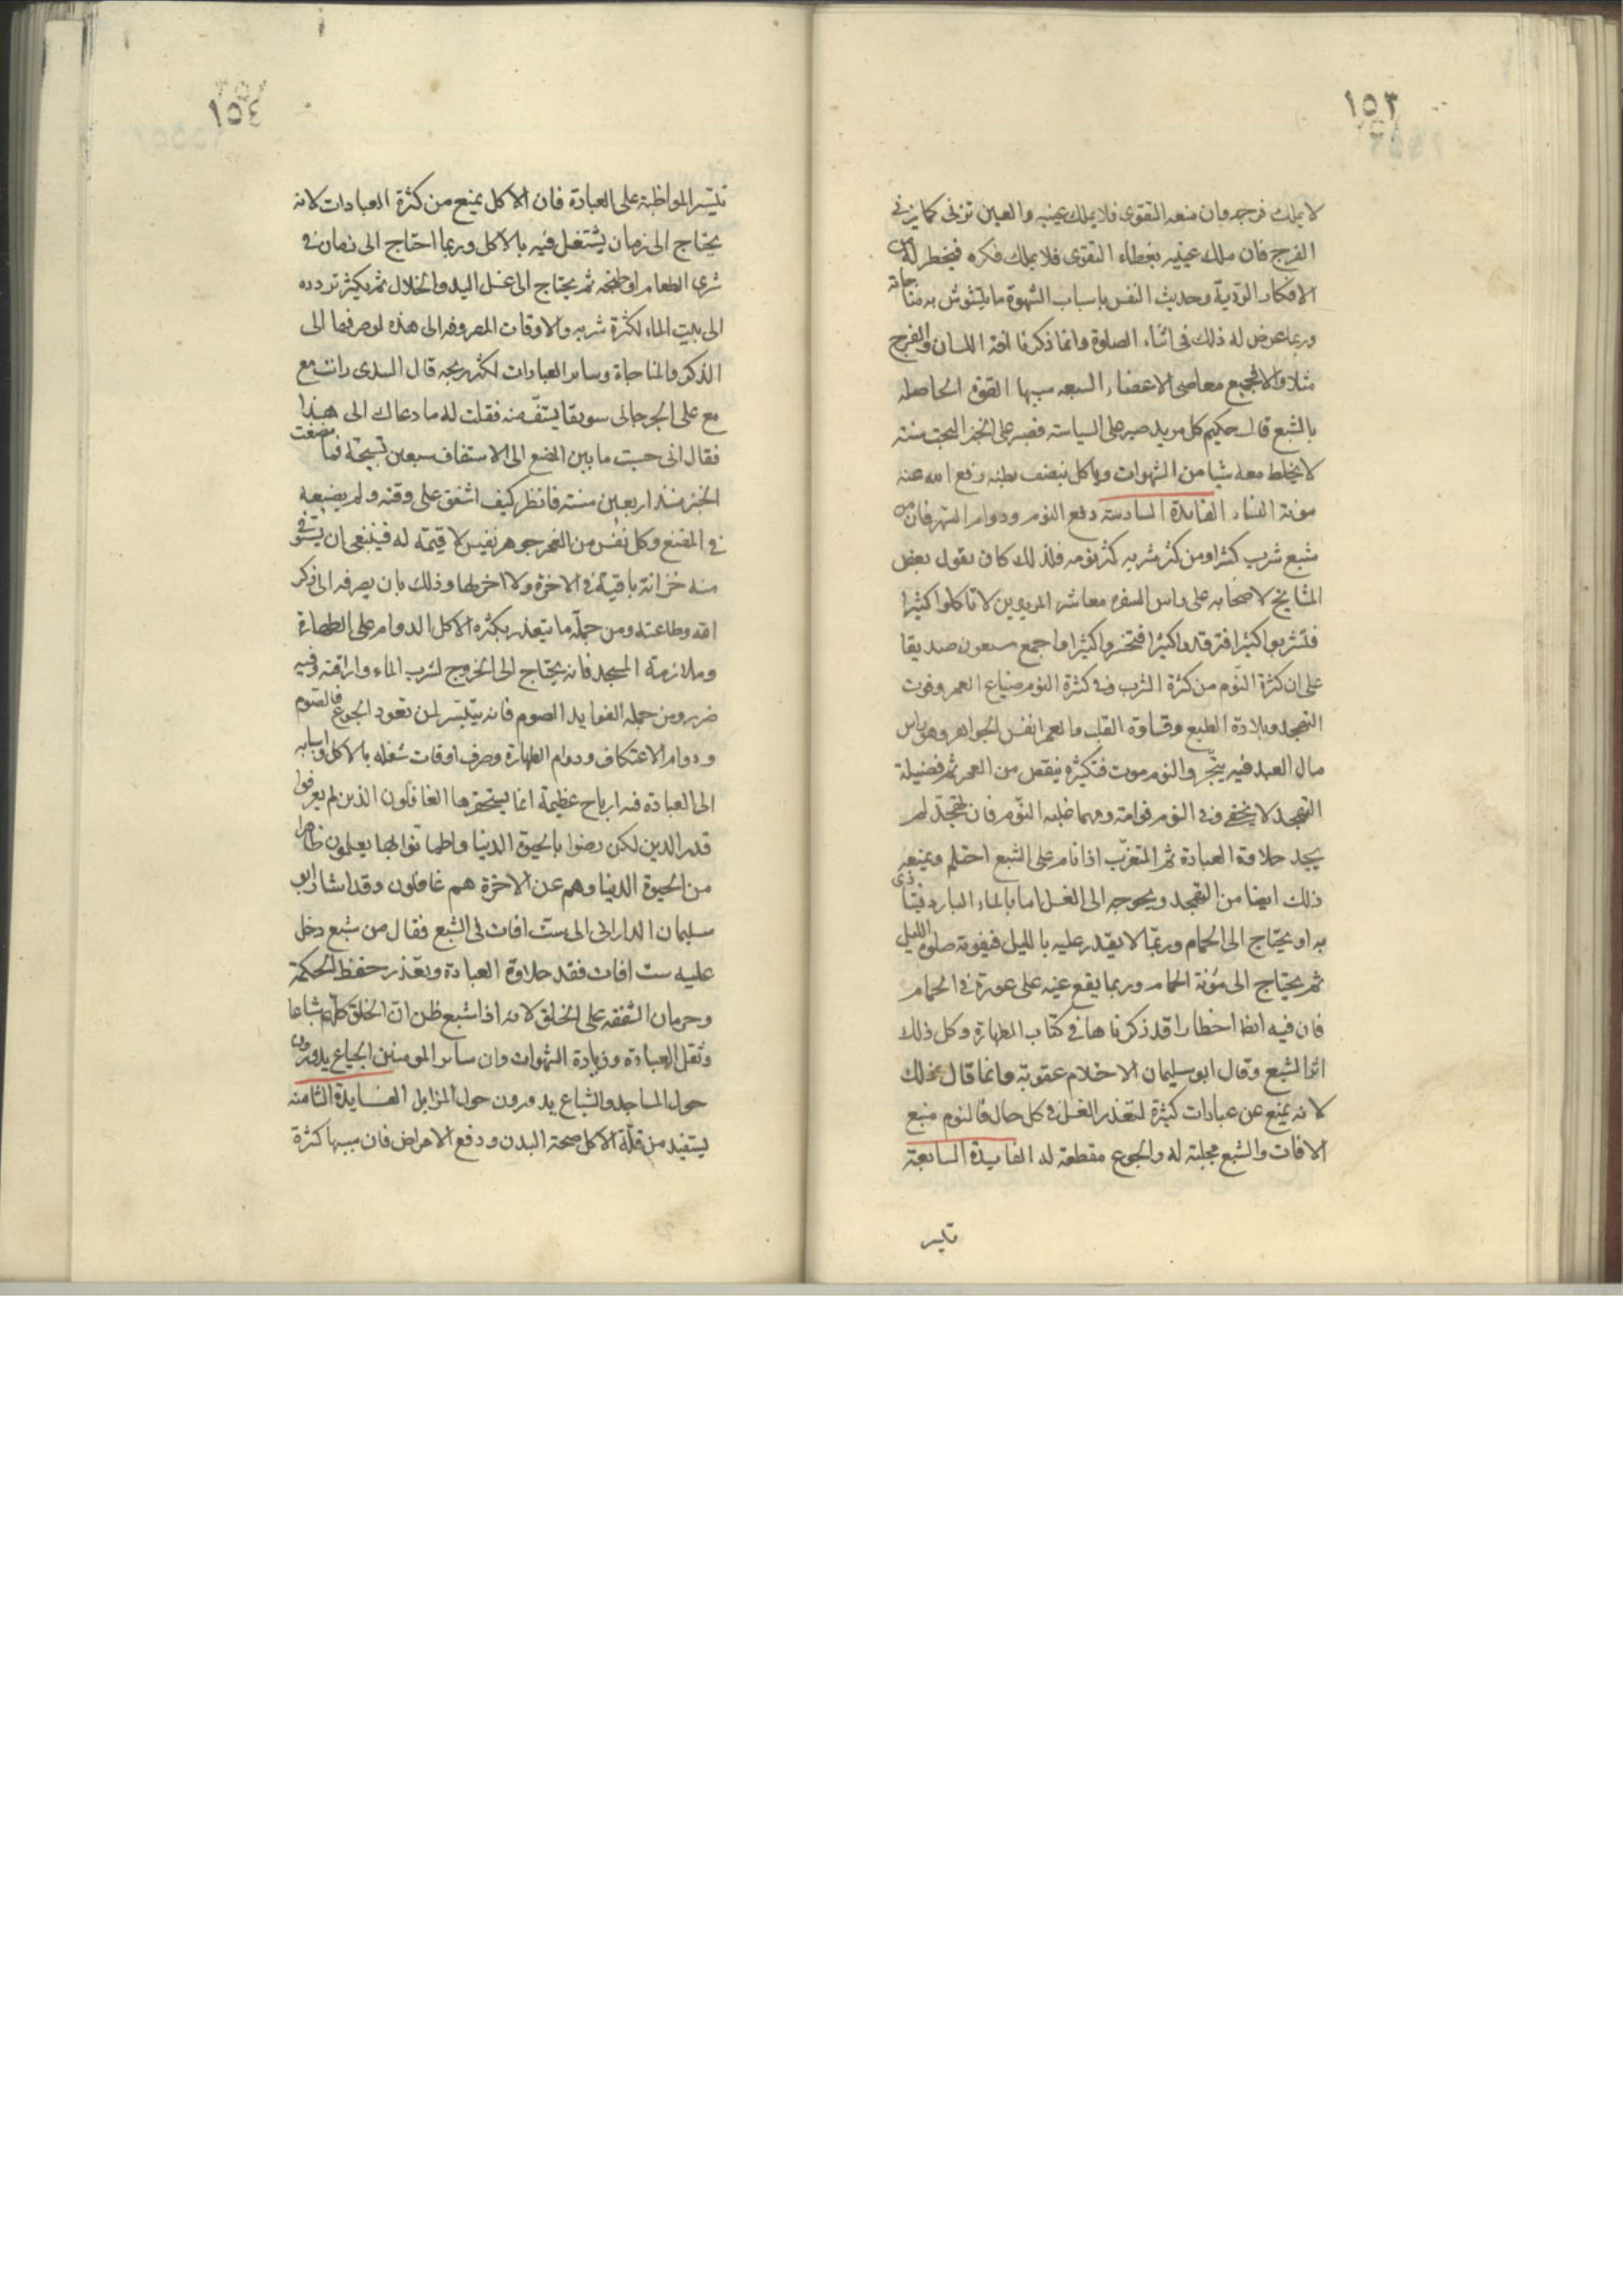 ١٥٣
لا يملك فرجه وان منعه التقوى فلا يملك عينيه والعين تزنى كما يزنى
الفرج فان ملك عينيه بغطاء التقوى فلا يملك فكره فيخطر له من
الافكار الرديّة وحديث النفس باسباب الشهوة ما يتشوش به مناجاته
وربما عرض له ذلك فى اثناء الصلوة وانما ذكرنا افة اللسان والفرج
مثلا والا فجميع معاصى الاعضاء السبعه سببها القوة الحاصله
بالشبع قال حكيم كل مريد صبر على السياسته فصبر على الخبز البحت سنته
لا يخلط معه شيا من الشهوات وياكل بنصف بطنه رفع الله عنه
مونة النساء الفايدة السادسة دفع النوم ودوام السهر فان من
شبع شرب كثيرا ومن كثر شربه كثر نومه فلذلك كان يقول بعض
المشايخ لاصحابه على راس السفره معاشر المريدين لا تاكلوا كثيرا
فتشربوا كثيرا فترقدوا كثيرا فتخسروا كثيرا واجمع سبعون صديقا
على ان كثرة النّوم من كثرة الشرب وفى كثرة النوم ضياع العمر وفوت
التهجد وبلادة الطبع وقساوة القلب والعمر انفس الجواهر وهو راس
مال العبد فيه يتّجر والنوم موت فتكثيره ينقص من العمر ثم فضيلة
التهجد لا يخفى وفى النوم فواته ومهما غلبه النّوم فان تهجّد لم
يجد حلاوة العبادة ثم المتعزّب اذا نام على الشبع احتلم ويمنعه
ذلك ايضا من التهجد ويحوجه الى الغسل اما بالماء البارد فيتاذى
به او يحتاج الى الحمام وربّما لا يقدر عليه بالليل فيفوته صلوة الليل
ثم يحتاج الى مؤنة الحمام وربما يقع عينه على عورة فى الحمام
فان فيه ايضا اخطارا قد ذكرناها فى كتاب الطهارة وكل ذلك
اثر الشبع وقال ابو سليمان الاحتلام عقوبة وانما قال ذلك
لانه يمنع عن عبادات كثيرة لتعذر الغسل فى كل حال فالنوم منبع
الافات والشبع مجلبته له والجوع مقطعة له الفايدة السابعة
تيسر
١٥٤
تيسّر المواظبة على العبادة فان الاكل يمنع من كثرة العبادات لانه
يحتاج الى زمان يشتغل فيه بالاكل وربما احتاج الى زمان فى
شرى الطعام او طبخه ثم يحتاج الى غسل اليد والخلال ثم يكثر تردده
الى بيت الماء لكثرة شربه والاوقات المصروفه الى هذه لو صرفها الى
الذكر والمناجاة وساير العبادات لكثر ربحه قال السدى رايت مع
مع على الجرجانى سويقا يستفّ منه فقلت له ما دعاك الى هذا
فقال انى حسبت ما بين المضغ الى الاستفاف سبعين تسبيحة فما مضغت
الخبز منذ اربعين سنته فانظر كيف اشفق على وقته ولم يضيعه
فى المضغ وكل نفس من العمر جوهر نفيس لا قيمة له فينبغى ان يستوفى
منه خزانة باقية فى الاخرة ولا اخر لها وذلك بان يصرفه الى ذكر
الله وطاعته ومن جملة ما يتعذر بكثره الاكل الدوام على الطهارة
وملازمة المسجد فانه يحتاج الى الخروج لشرب الماء واراقته وفيه
ضرر ومن جمله الفوايد الصوم فانه يتيسّر لمن تعود الجوع فالصّوم
ودوام الاعتكاف ودوام الطهارة وصرف اوقات شغله بالاكل واسبابه
الى العبادة فيه ارباح عظيمة انما يستحقرها الغافلون الذين لم يعرفوا
قدر الدين لكن رضوا بالحيوة الدنيا واطمانوا بها يعلمون ظاهرا
من الحيوة الدنيا وهم عن الاخرة هم غافلون وقد اشار ابو
سليمان الدارانى الى ست افات فى الشبع فقال من شبع دخل
عليه ست افات فقد حلاوة العبادة وتعذر حفظ الحكمة
وحرمان الشفقه على الخلق لانه اذا شبع ظن انّ الخلق كلّهم شباعا
وثقل العبادة وزيادة الشهوات وان ساير المومنين الجياع يدورون
حول المساجد والشباع يدورون حول المزابل الفايدة الثامنه
يستفيد من قلّة الاكل صحة البدن ودفع الامراض فان سببها كثرة